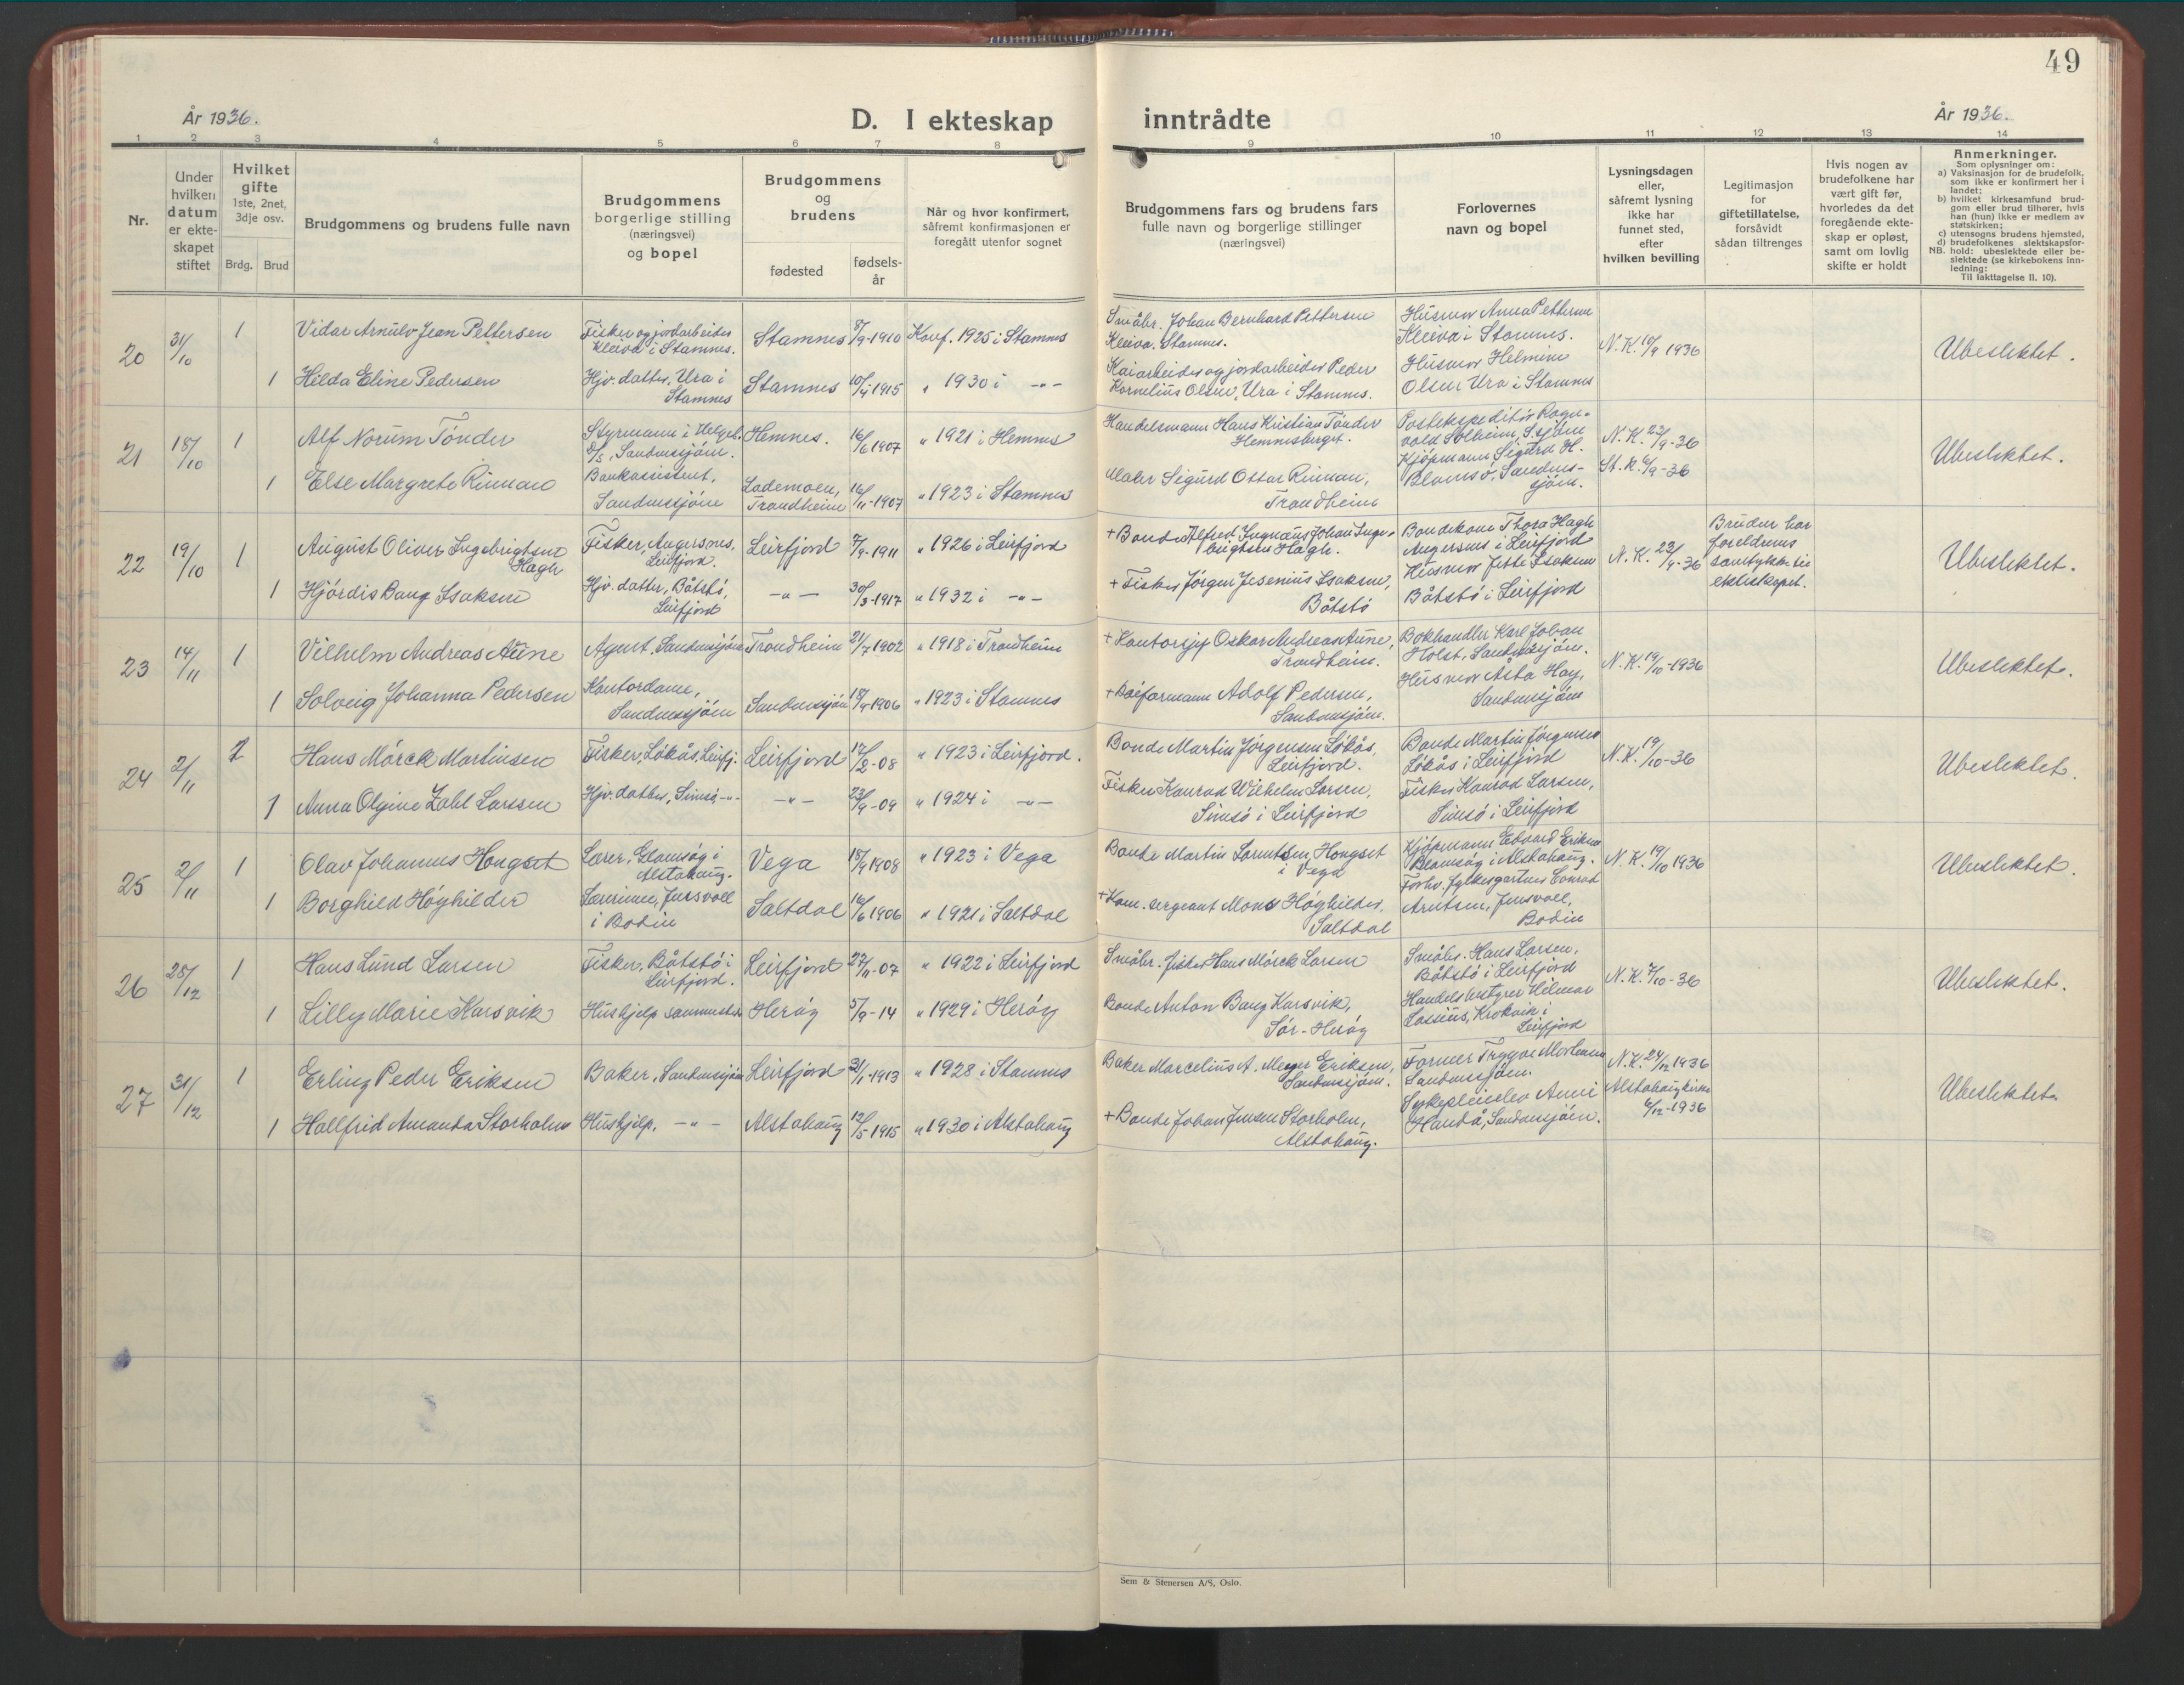 49
År 1936.
D. I ekteskap inntrådte
År 1936.
1 2 3 4 5 6 7 8 9 10 11 12 13 14
Nr.
Under
hvilken
datum
er ekte-
skapet
stiftet
Hvilket
gifte
1ste, 2net,
3dje osv.
Brdg. Brud
Brudgommens og brudens fulle navn
Brudgommens
borgerlige stilling
(næringsvei)
og bopel
Brudgommens
og
brudens
fødested
fødsels-
år
Når og hvor konfirmert,
såfremt konfirmasjonen er
foregått utenfor sognet
Brudgommens fars og brudens fars
fulle navn og borgerlige stillinger
(næringsvei)
Forlovernes
navn og bopel
Lysningsdagen
eller,
såfremt lysning
ikke har
funnet sted,
efter
hvilken bevilling
Legitimasjon
for
giftetillatelse,
forsåvidt
sådan tiltrenges
Hvis nogen av
brudefolkene har
vært gift før,
hvorledes da det
foregående ekte-
skap er opløst,
samt om lovlig
skifte er holdt
Anmerkninger.
Som oplysninger om:
a) Vaksinasjon for de brudefolk,
som ikke er konfirmert her i
landet;
b) hvilket kirkesamfund brud-
gom eller brud tilhører, hvis
han (hun) ikke er medlem av
statskirken;
c) utensogns brudens hjemsted,
d) brudefolkenes slektskapsfor-
NB. hold: ubeslektede eller be-
slektede (se kirkebokens inn-
ledning:
Til iakttagelse II. 10).
20 31/10 1 Vidar Arnulv Jean Pettersen
Fisker og jordarbeider
Kleiva i Stamnes.
Stamnes 8/9-1910 Konf. 1925 i Stamnes
Småbr. Johan Bernhard Pettersen
Kleiva, Stamnes.
Husmor Anna Pettersen
Kleiva i Stamnes.
N.K. 10/9 1936
Ubeslektet.
1 Hilda Eline Pedersen
Hjv. datter, Ura i
Stamnes
Stamnes 10/4-1915 " 1930 i -"-
Kaiarbeider og jordarbeider Peder
Kornelius Olsen, Ura i Stamnes.
Husmor Helmine
Olsen Ura i Stamnes
21 18/10 1 Alf Norum Tönder
Styrmann i Helgel.
D/S, Sandnessjöen.
Hemnes. 16/6 1907 " 1921 i Hemnes
Handelsmann Hans Kristian Tönder
Hemnesberget.
Postekspeditör Ragn-
vald Solheim, S.sjöen
N.K. 23/9-36
Ubeslektet.
1 Else Margrete Rinnan
Bankassistent,
Sandnessjöen
Lademoen,
Trondheim
16/11-1907 " 1923 i Stamnes
Maler Sigurd Ottar Rinnan,
Trondheim
Kjöpmann Sigurd H.
Blomsö, Sandnes-
sjöen.
St.K. 6/9-36
22 19/10 1 August Oliver Ingebrigtsen
Hagh
Fisker, Angersnes,
Leirfjord.
Leirfjord 7/9-1911 " 1926 i Leirfjord
+ Bonde Alfred Ingmans Johan Inge-
brigtsen Hagh.
Bondekone Thora Hagh
Angersnes i Leirfjord
N.K. 23/9-36
Bruden har
foreldrenes
samtykke til
ekteskapet.
Ubeslektet.
1 Hjördis Bang Isaksen
Hjv. datter, Båtstö,
Leirfjord
-"- 30/3-1917 " 1932 i -"-
+ Fisker Jörgen Jesenius Isaksen,
Båtstö
Husmor Jette Isaksen
Båtstö i Leirfjord
23 14/11 1 Vilhelm Andreas Aune
Agent, Sandnessjöen
Trondheim 21/7 1902 " 1918 i Trondheim
+ Kontorsjef Oskar Andreas Aune,
Trondheim.
Bokhandler Karl Johan
Holst, Sandnessjöen.
N.K. 19/10-1936
Ubeslektet.
1 Solveig Johanna Pedersen
Kontordame,
Sandnessjöen
Sandnessjöen 18/9-1906 " 1923 i Stamnes
+ Baseformann Adolf Pedersen,
Sandnessjöen.
Husmor Asta Hay,
Sandnessjöen
24 2/11 2 Hans Mörck Martinsen
Fisker, Lökås, Leirfj.
Leirfjord 12/2-08 " 1923 i Leirfjord.
Bonde Martin Jörgensen Lökås,
Leirfjord.
Bonde Martin Jörgensen
Lökås i Leirfjord
N.K. 19/10-36
Ubeslektet.
1 Anna Olgine Zahl Larssen
Hjv. datter, Simsö -"-
-"- 23/9-09 " 1924 i -"-
Fisker Konrad Wilhelm Larsen,
Simsö i Leirfjord
Fisker Konrad Larsen,
Simsö i Leirfjord
25 2/11 1 Olav Johannes Hongset
Lærer, Blomsög i
Alstahaug.
Vega 18/9 1908 " 1923 i Vega
Bonde Martin Lorentsen Hongset
i Vega
Kjöpmann Edvard Eriksen
Blomsög i Alstahaug.
N.K. 19/10 1936
Ubeslektet.
1 Borghild Höyhilder
Lærerinne, Jensvoll
i Bodin
Saltdal 16/6 1906 " 1921 i Saltdal
+ Kom. sergeant Mons Höyhilder,
Saltdal
Forhv. fylkesgartner Conrad
Arntsen, Jensvoll,
Bodin
26 28/12 1 Hans Lund Larsen
Fisker, Båtstö i
Leirfjord.
Leirfjord 27/11-07 " 1922 i Leirfjord
Småbr. fisker Hans Mörck Larsen
Småbr. Hans Larsen,
Båtstö i Leirfjord
N.K. 7/10-36
Ubeslektet.
1 Lilly Marie Karsvik
Hushjelp sammesteds
Heröy 5/9-14 " 1929 i Heröy
Bonde Anton Bang Karsvik,
Sör-Heröy
Handelsbestyrer Hilmar
Lassius, Krokvik i
Leirfjord
27 31/12 1 Erling Peder Eriksen
Baker, Sandnessjöen
Leirfjord 31/1-1913 " 1928 i Stamnes
Baker Marcelius A. Meyer Eriksen,
Sandnessjöen.
Former Trygve Mortensen
Sandnessjöen.
N.K. 24/12 1936
Ubeslektet.
1 Hallfrid Amanda Storholm
Hushjelp, -"-
Alstahaug 12/5-1915 " 1930 i Alstahaug
+ Bonde Johan Jensen Storholm,
Alstahaug.
Sykepleieelev Anni
Handå, Sandnessjöen.
Alstahaug kirke
6/12-1936
Sem & Stenersen A/S, Oslo.